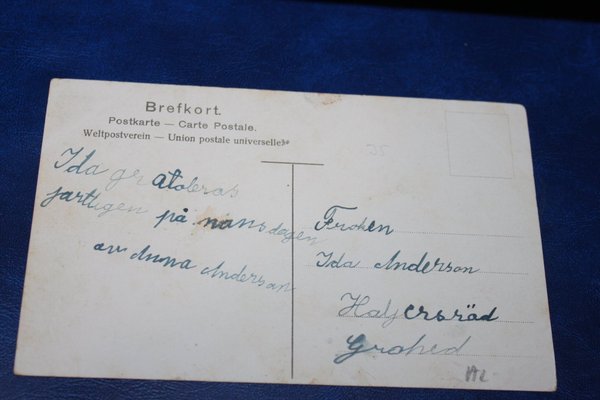 Brefkort.
Postkarte — Carte Postale.
Weltpostverein — Union postale universelle
35
Ida gratoleras
jartligen på nansdagen
av Anna Anderson
Froken
Ida Anderson
Haljersräd
Grohed